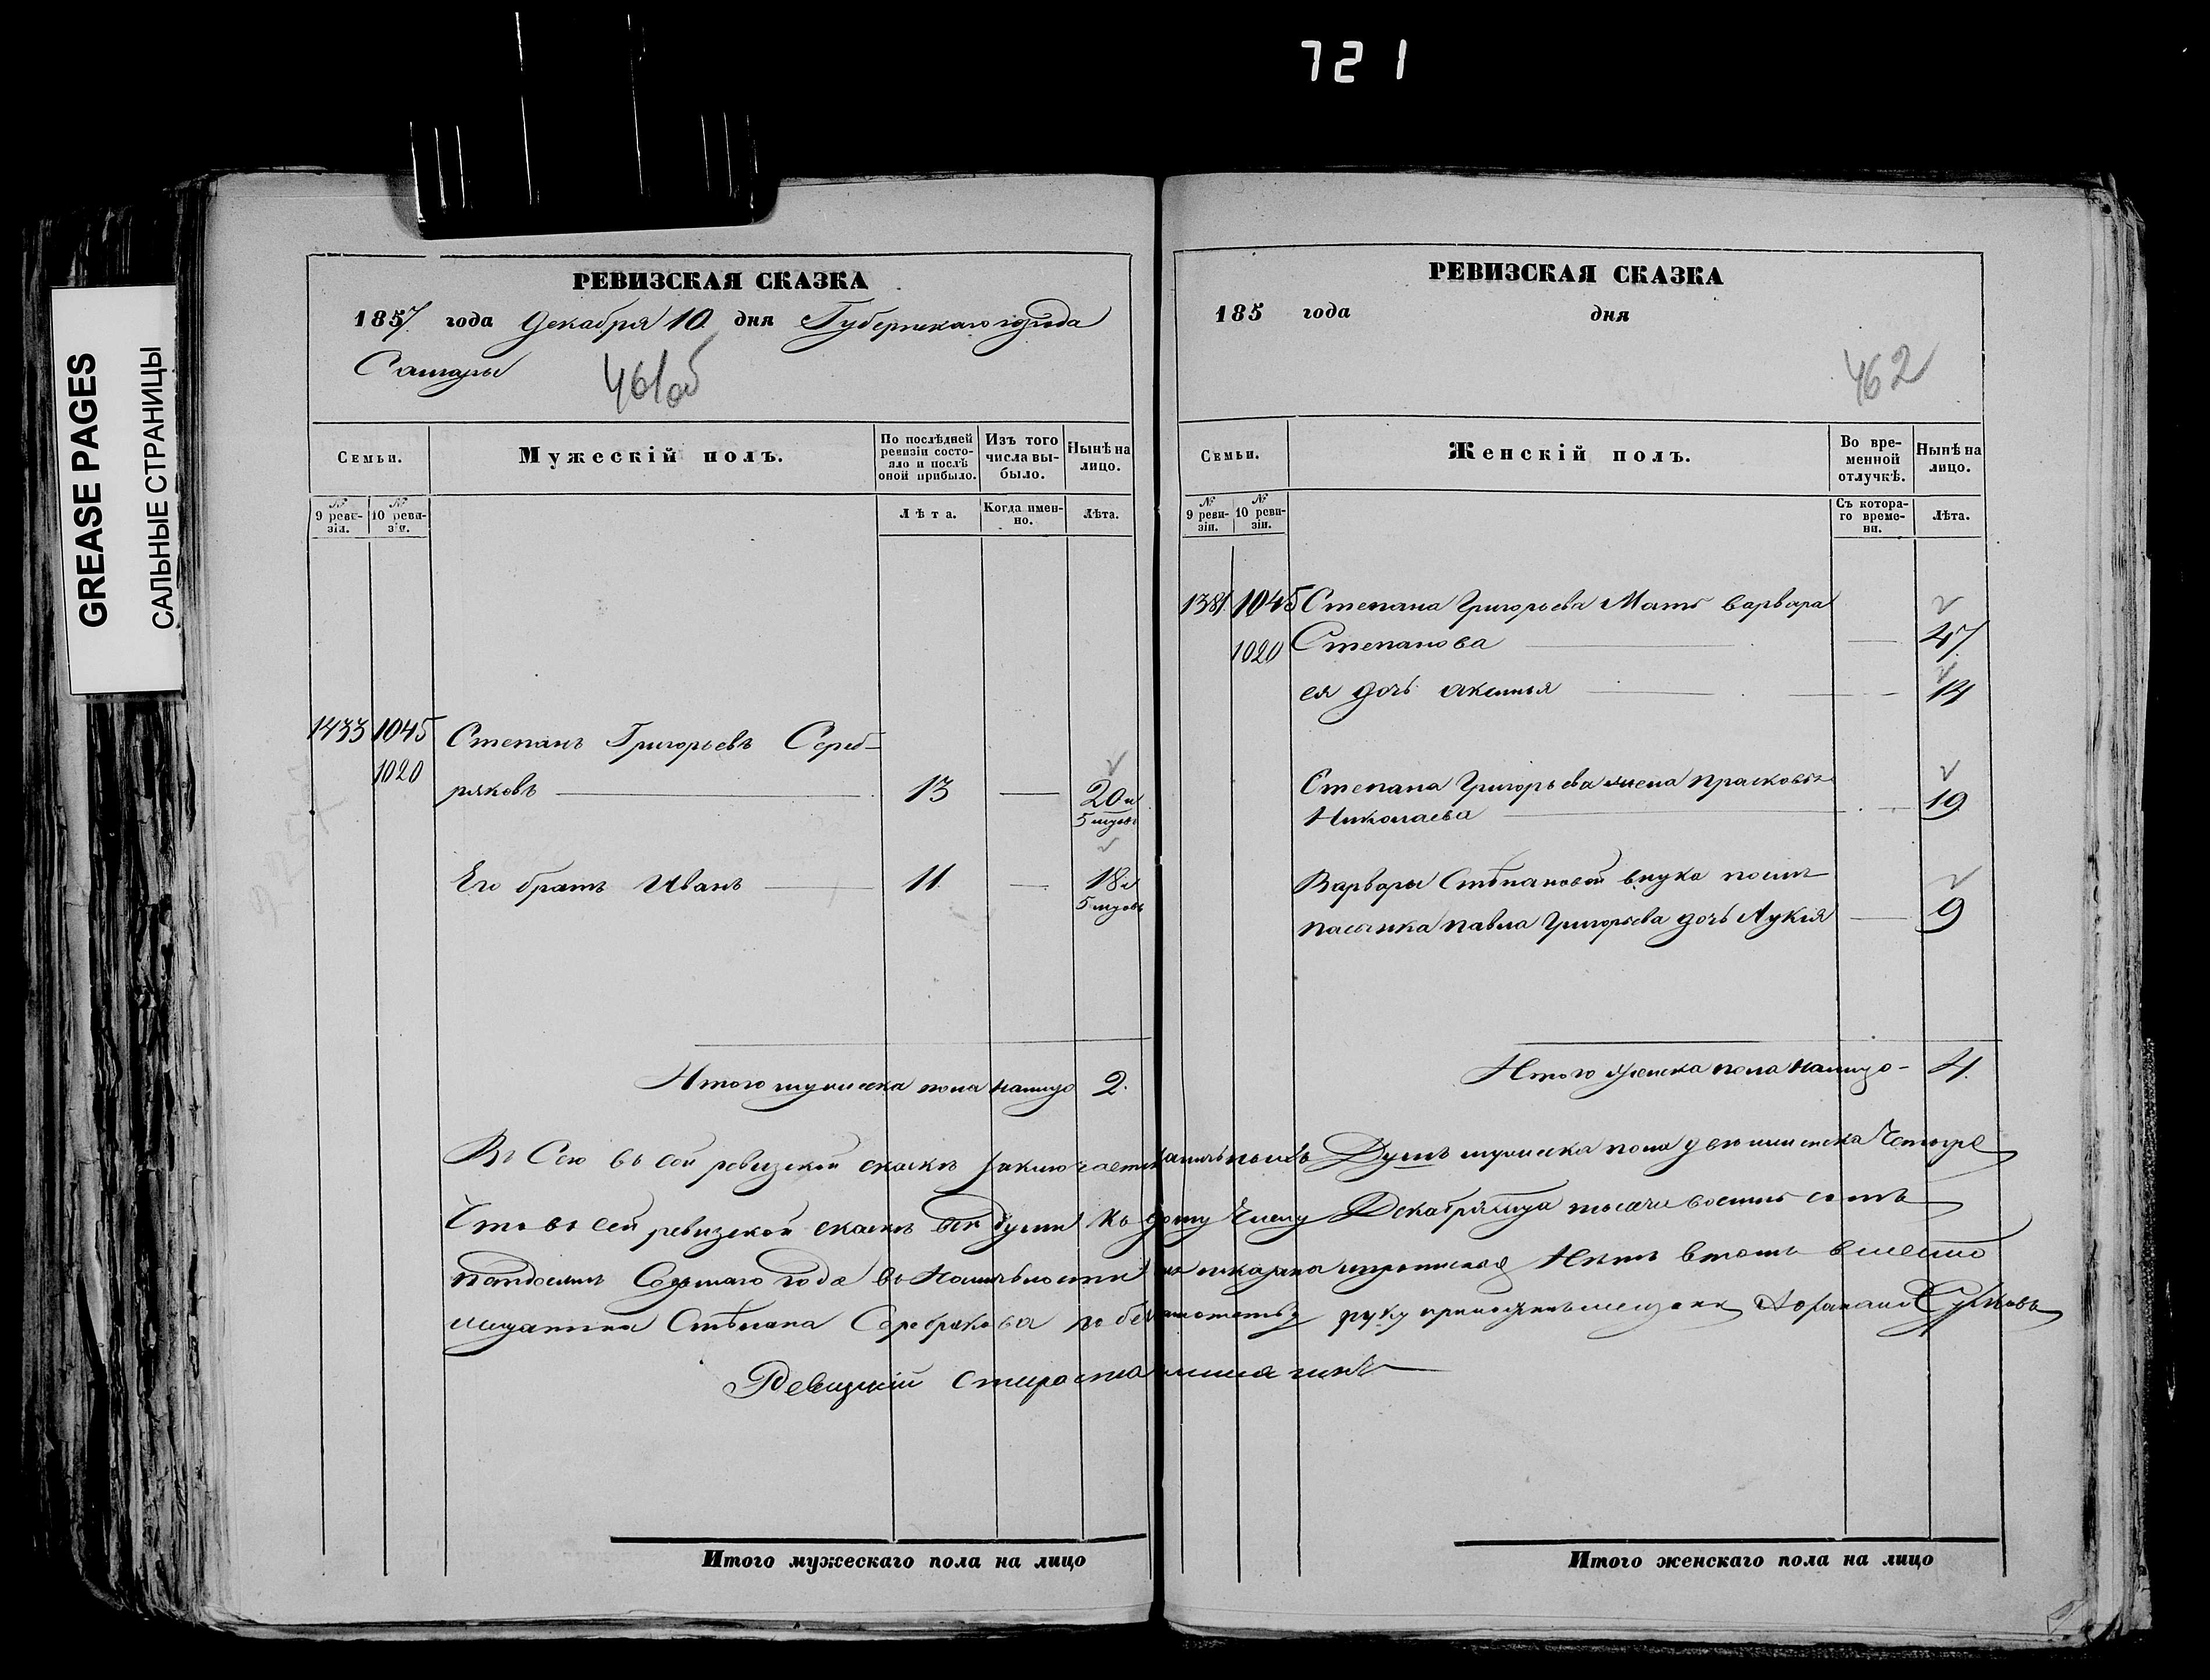 721
GREASE PAGES
САЛЬНЫЕ СТРАНИЦЫ
РЕВИЗСКАЯ СКАЗКА
1857 года Декабря 10 дня Губернскаго города
Самары
461об
Семьи.
Мужескій полъ.
По послѣдней ревизіи состояло и послѣ оной прибыло.
Изъ того числа выбыло.
Нынѣ на лицо.
№ 9 ревизіи.
№ 10 ревизіи.
Лѣта.
Когда именно.
Лѣта.
1433 1045 Степанъ Григорьевъ Сереб-
1020
ряковъ 13 20 и
5 мцовъ
Его братъ Иванъ 11 18 и
5 мцовъ
Итого мужеска пола налицо 2.
РЕВИЗСКАЯ СКАЗКА
185 года дня
462
Семьи.
Женскій полъ.
Во временной отлучкѣ.
Нынѣ на лицо.
№ 9 ревизіи.
№ 10 ревизіи.
Съ котораго времени.
Лѣта.
1381 1045 Степана Григорьева Мать варвара
1020 Степанова 47
ея дочь аксинья 14
Степана Григорьева жена прасковья
Николаева 19
Варвары Степановой внука
пасынка павла Григорьева дочь Лукія 9
Итого женска пола налицо 4.
въ сей ревизской скаске заключается Душъ мужеска пола две и женска Четыре
Что въ сей ревизской скаске все души къ Числу Декабря тысяча восемь сотъ
Седьмаго года въ Нетъ втомъ вместо
мещанина Степана Серебрякова руку
Ревизскій Староста
Итого мужескаго пола на лицо
Итого женскаго пола на лицо